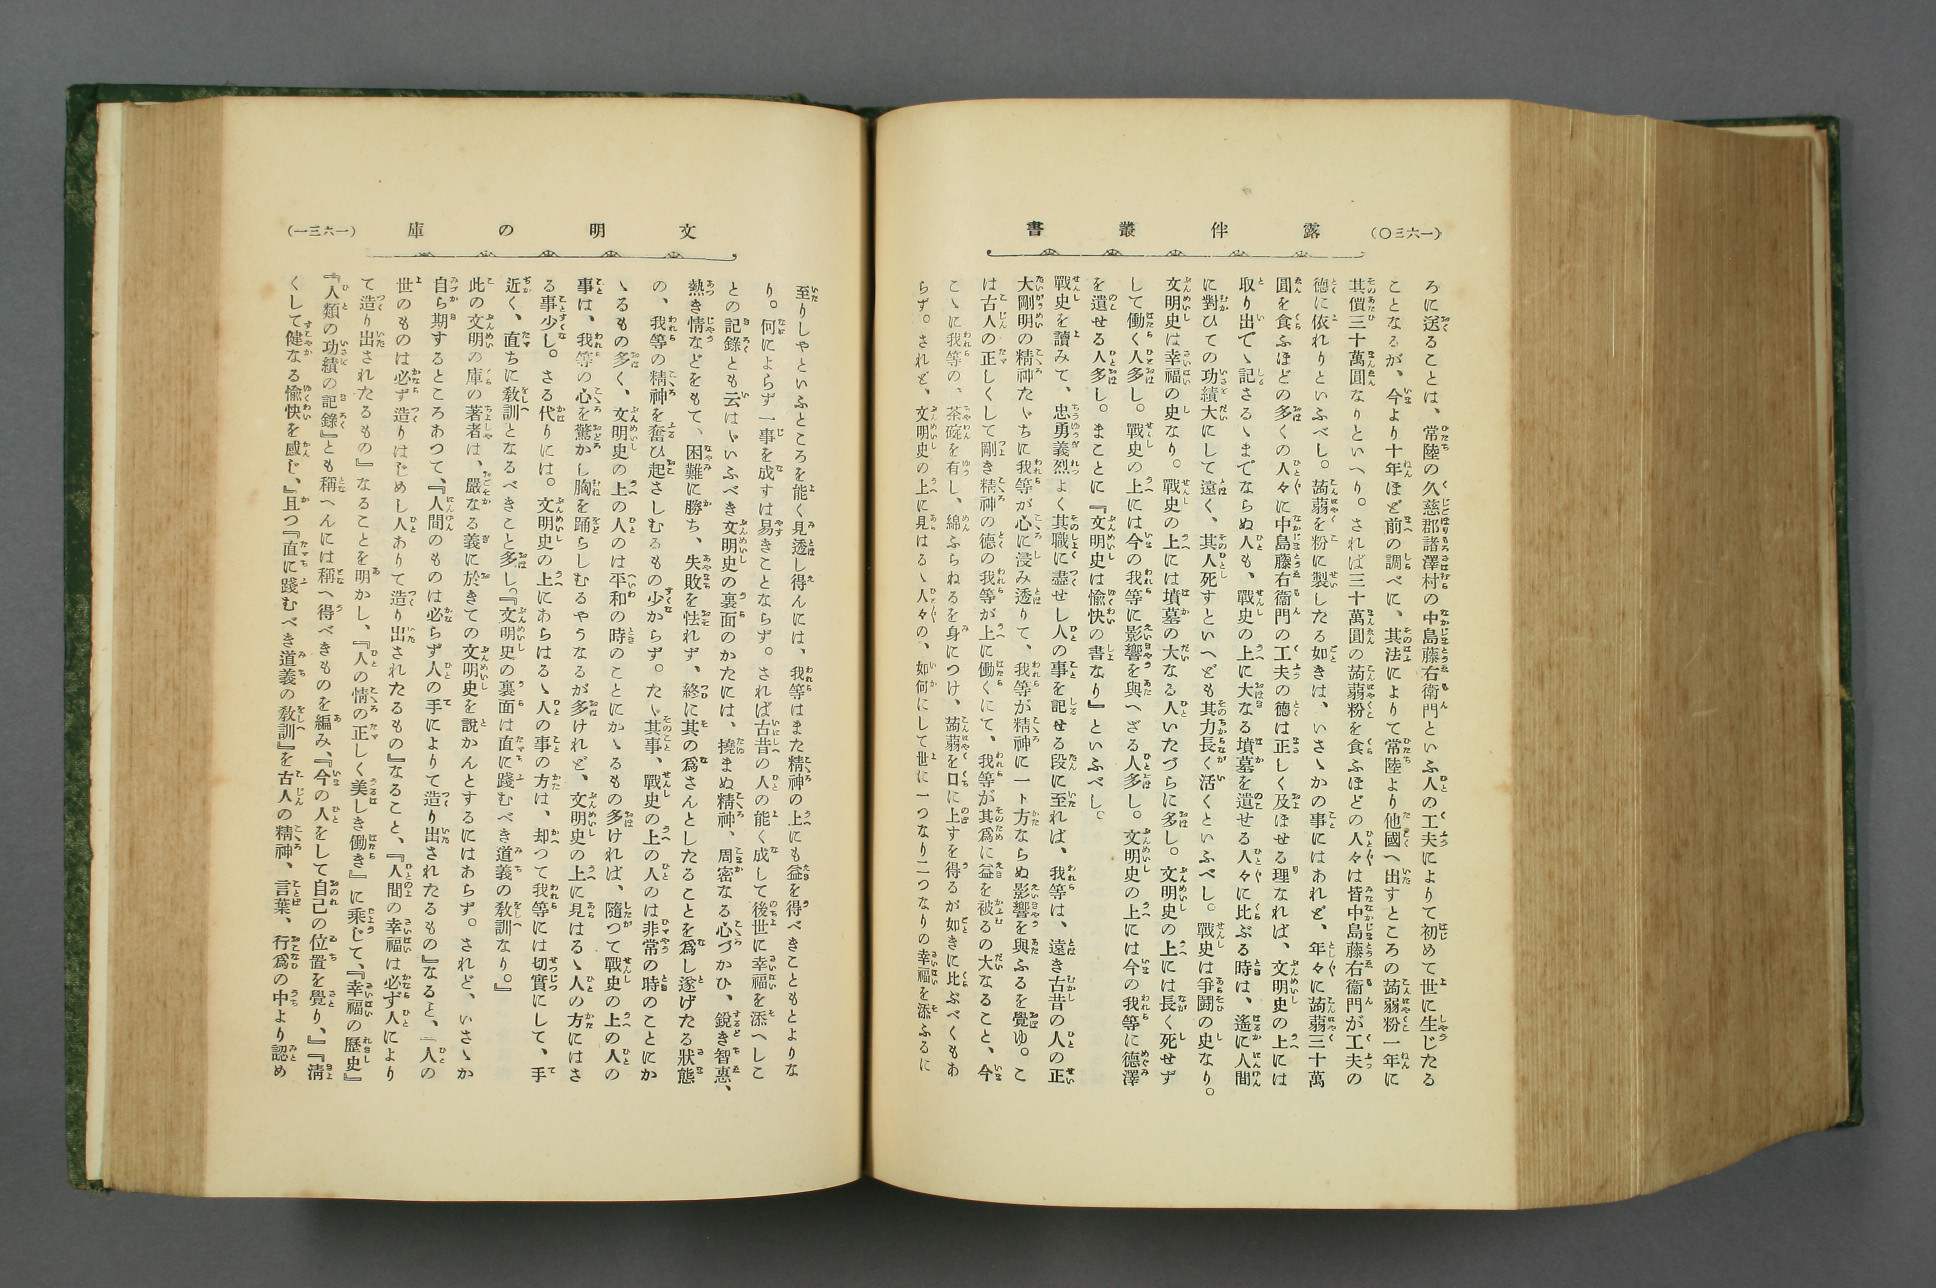 (一六三〇)
露伴叢書
ろに送ることは、常陸の久慈郡諸澤村の中島藤右衞門といふ人の工夫によりて初めて世に生じたる
ことなるが、今より十年ほど前の調べに、其法によりて常陸より他國へ出すところの蒟蒻粉一年に
其價三十萬圓なりといへり。されば三十萬圓の蒟蒻粉を食ふほどの人々は皆中島藤右衞門が工夫の
德に依れりといふべし。蒟蒻を粉に製したる如きは、いさゝかの事にはあれど、年々に蒟蒻三十萬
圓を食ふほどの多くの人々に中島藤右衞門の工夫の德は正しく及ぼせる理なれば、文明史の上には
取り出でゝ記さるゝまでならぬ人も、戰史の上に大なる墳墓を遺せる人々に比ぶる時は、遙に人間
に對ひての功績大にして遠く、其人死すといへども其力長く活くといふべし。戰史は爭鬪の史なり。
文明史は幸福の史なり。戰史の上には墳墓の大なる人いたづらに多し。文明史の上には長く死せず
して働く人多し。戰史の上には今の我等に影響を與へざる人多し。文明史の上には今の我等に德澤
を遺せる人多し。まことに『文明史は愉快の書なり』といふべし。
戰史を讀みて、忠勇義烈よく其職に盡せし人の事を記せる段に至れば、我等は、遠き古昔の人の正
大剛明の精神たゞちに我等が心に浸み透りて、我等が精神に一ト方ならぬ影響を與ふるを覺ゆ。こ
は古人の正しくして剛き精神の德の我等が上に働くにて、我等が其爲に益を被るの大なること、今
こゝに我等の、茶碗を有し、綿ぶらねるを身につけ、蒟蒻を口に上すを得るが如きに比ぶべくもあ
らず。されど、文明史の上に見はるゝ人々の、如何にして世に一つなり二つなりの幸福を添ふるに
文明の庫
(一六三一)
至りしやといふところを能く見透し得んには、我等はまた精神の上にも益を得べきこともとよりな
り。何によらず一事を成すは易きことならず。されば古昔の人の能く成して後世に幸福を添へしこ
との記錄とも云はゞいふべき文明史の裏面のかたには、撓まぬ精神、周密なる心づかひ、銳き智惠、
熱き情などをもて、困難に勝ち、失敗を怯れず、終に其の爲さんとしたることを爲し遂げたる狀態
の、我等の精神を奮ひ起さしむるもの少からず。たゞ其事、戰史の上の人のは非常の時のことにか
ゝるもの多く、文明史の上の人のは平和の時のことにかゝるもの多ければ、隨つて戰史の上の人の
事は、我等の心を驚かし胸を踊らしむるやうなるが多けれど、文明史の上に見はるゝ人の方にはさ
る事少し。さる代りには。文明史の上にあらはるゝ人の事の方は、却つて我等には切實にして、手
近く、直ちに敎訓となるべきこと多し。『文明史の裏面は直に踐むべき道義の敎訓なり。』
此の文明の庫の著者は、嚴なる義に於きての文明史を說かんとするにはあらず。されど、いさゝか
自ら期するところあつて、『人間のものは必らず人の手によりて造り出されたるもの』なると、『人の
世のものは必ず造りはじめし人ありて造り出されたるもの』なること、『人間の幸福は必ず人により
て造り出されたるもの』なることを明かし、『人の情の正しく美しき働き』に乘じて、『幸福の歷史』
『人類の功績の記錄』とも稱へんには稱へ得べきものを編み、『今の人をして自己の位置を覺り、』『淸
くして健なる愉快を感じ、』且つ『直に踐むべき道義の敎訓』を古人の精神、言葉、行爲の中より認め